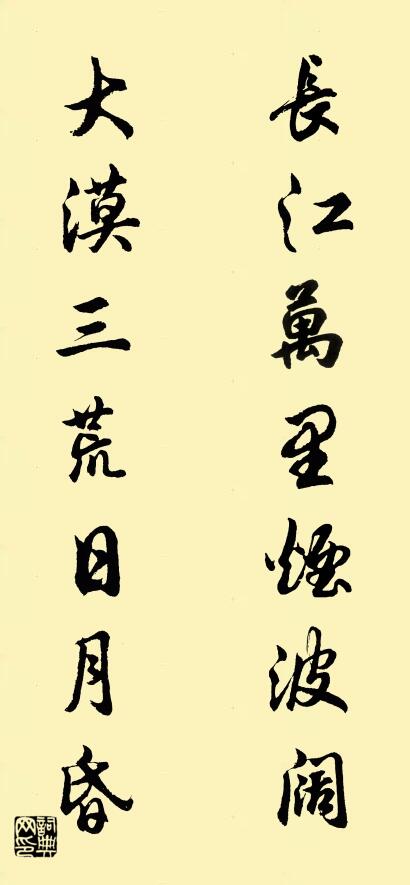 長江萬里煙波阔
大漠三荒日月昏
詞典网印